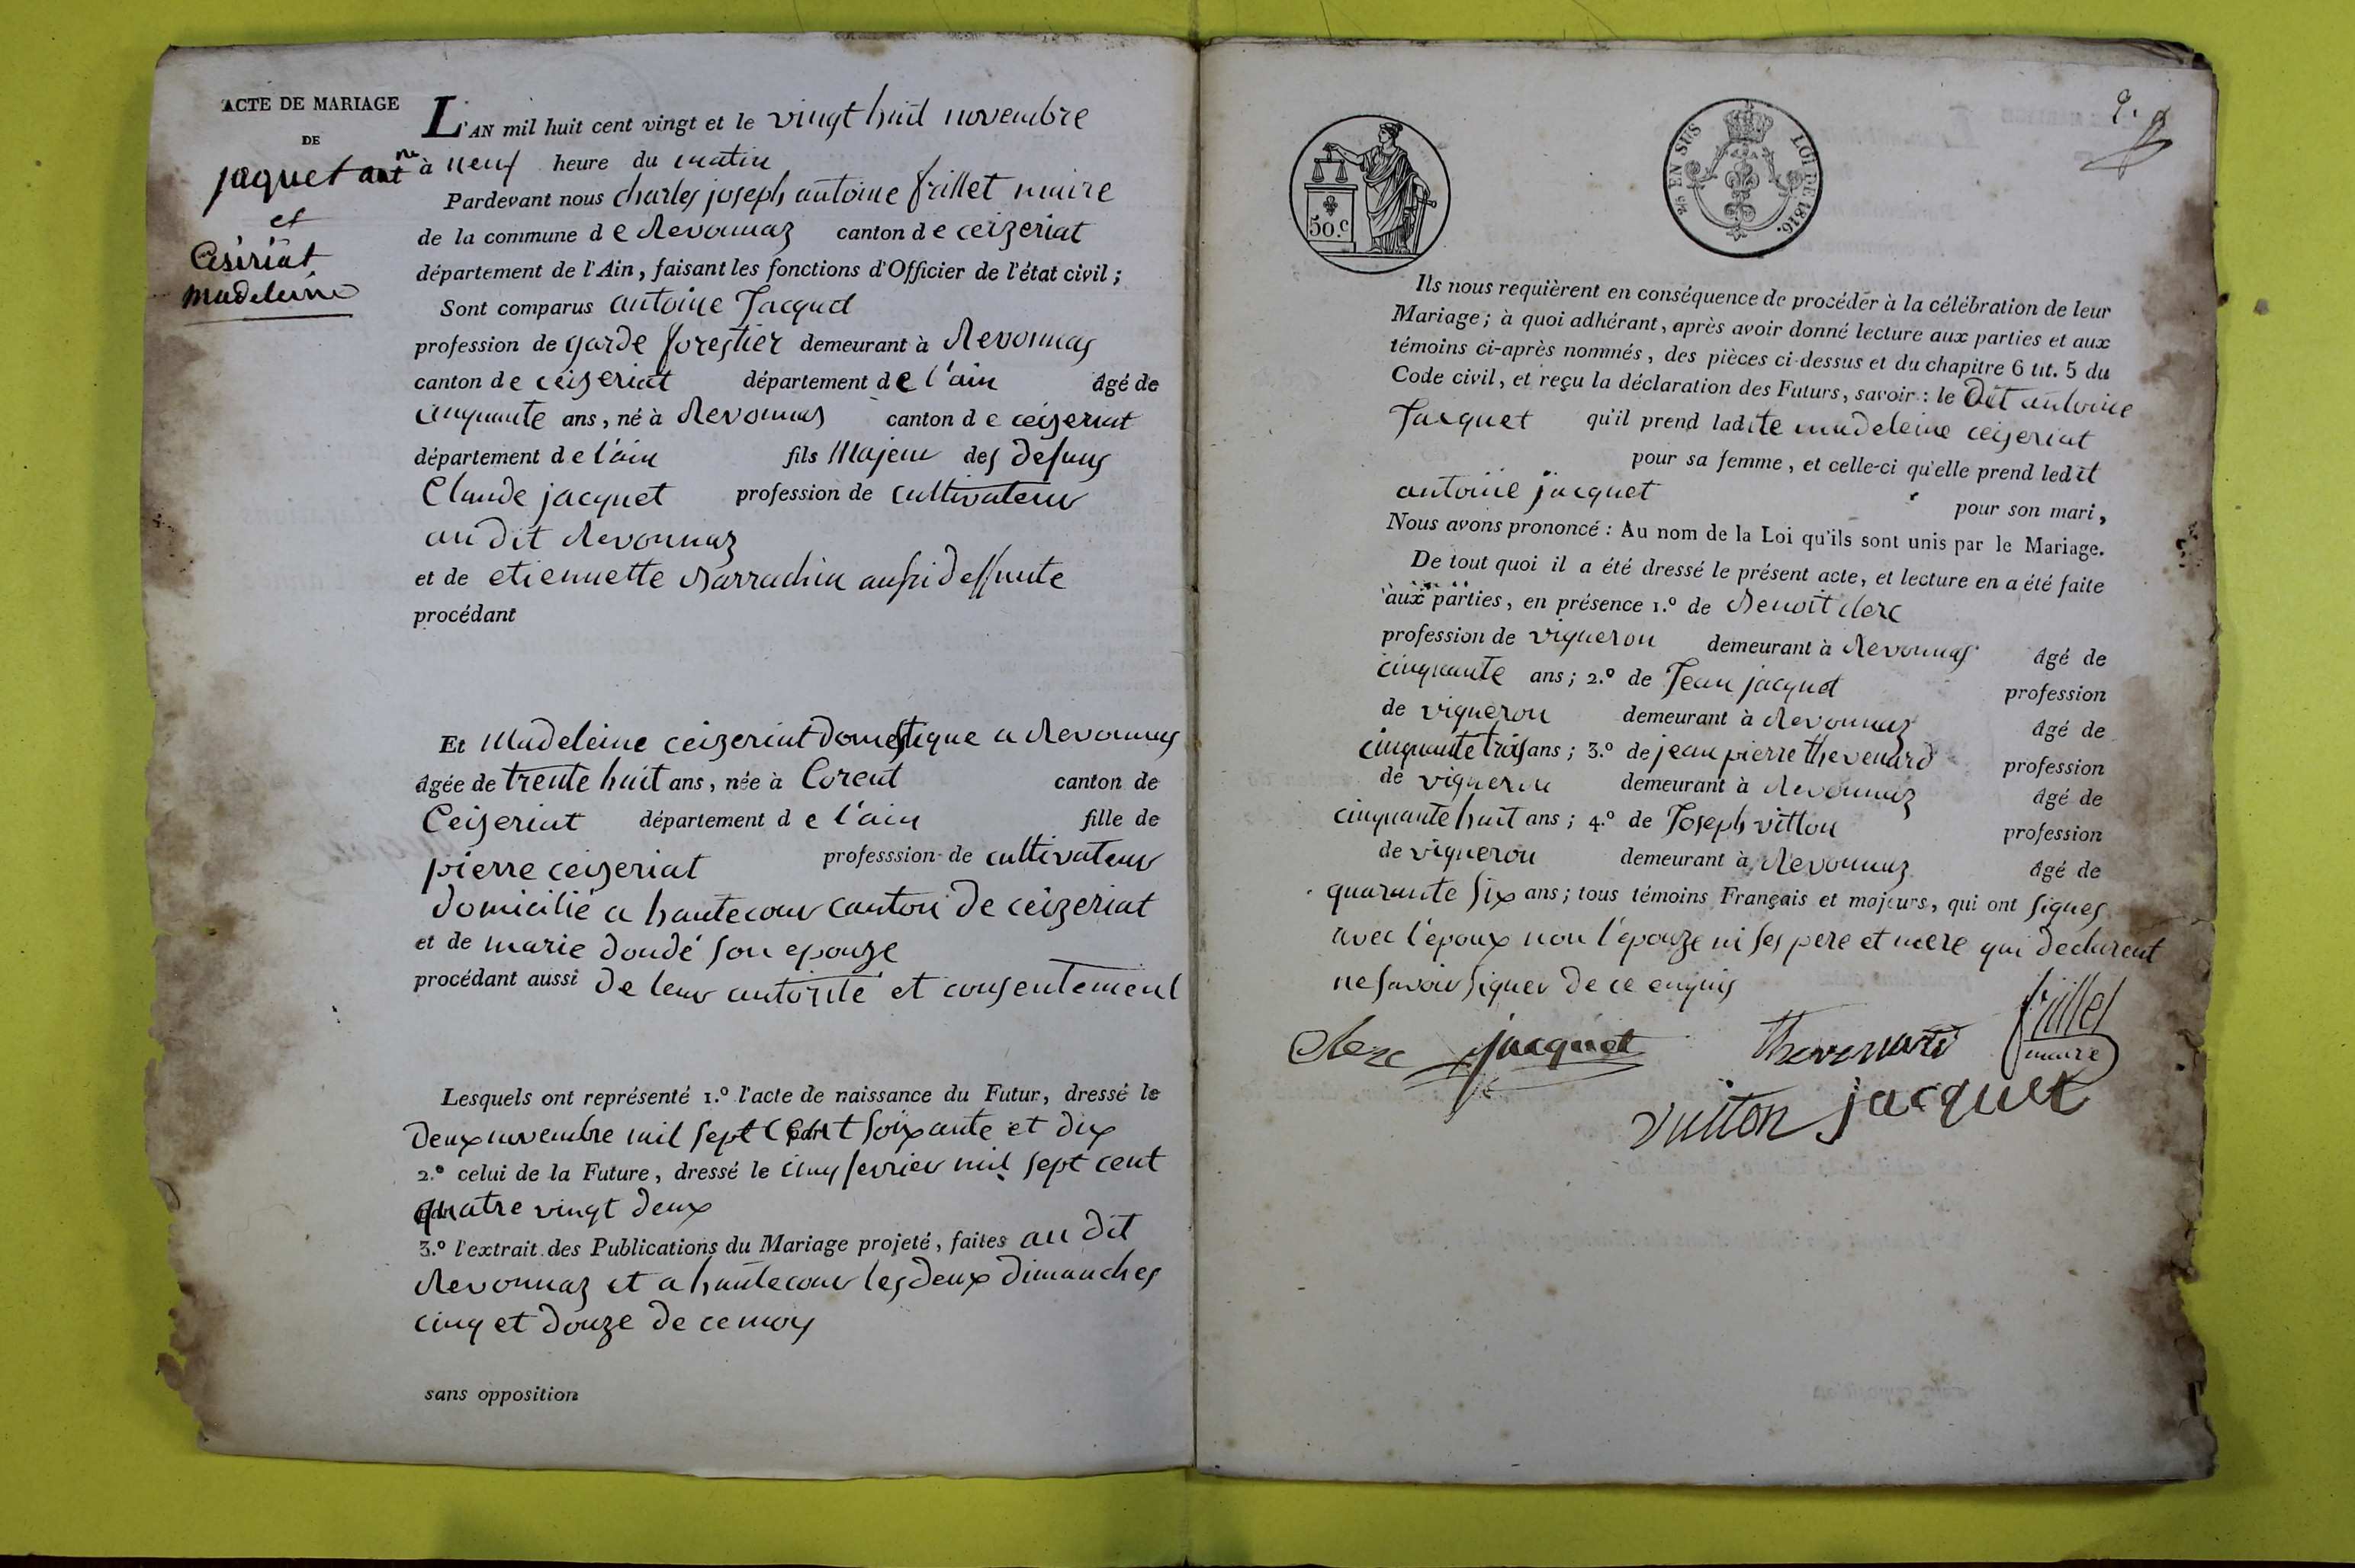 ACTE DE MARIAGE
DE
jaquet antne
et
Ceisiriat
madeleine
L'AN mil huit cent vingt et le vingt huit novembre
à neuf heure du matin
Pardevant nous charles joseph antoine frillet maire
de la commune de Revonnaz canton de ceizeriat
département de l'Ain, faisant les fonctions d'Officier de l'état civil ;
Sont comparus antoine Jacquet
profession de garde forestier demeurant à Revonnas
canton de ceizeriat département de l'ain âgé de
cinquante ans, né à Revonnas canton de ceizeriat
département de l'ain fils Majeur des defuns
Claude jacquet profession de cultivateur
au dit Revonnaz
et de etiennette Barrachin aussi deffunte
procédant
Et Madeleine ceizeriat domestique a Revonnas
âgée de trente huit ans, née à Corent canton de
Ceizeriat département de l'ain fille de
pierre ceizeriat professsion de cultivateur
domicilié a hautecour canton de ceizeriat
et de marie doudé son epouze
procédant aussi de leur autorité et consentement
Lesquels ont représenté 1.º l'acte de naissance du Futur, dressé le
deux novembre mil sept cent soixante et dix
2.º celui de la Future, dressé le cinq fevrier mil sept cent
quatre vingt deux
3.º l'extrait des Publications du Mariage projeté, faites au dit
Revonnaz et a hautecour les deux dimanches
cinq et douze de ce moy
sans opposition
9.
50.c
EN SUS
LOI DE 1816.
Ils nous requièrent en conséquence de procéder à la célébration de leur
Mariage ; à quoi adhérant, après avoir donné lecture aux parties et aux
témoins ci-après nommés, des pièces ci-dessus et du chapitre 6 tit. 5 du
Code civil, et reçu la déclaration des Futurs, savoir : le dit antoine
Jacquet qu'il prend ladite madeleine ceizeriat
pour sa femme, et celle-ci qu'elle prend ledit
antoine jacquet pour son mari,
Nous avons prononcé : Au nom de la Loi qu'ils sont unis par le Mariage.
De tout quoi il a été dressé le présent acte, et lecture en a été faite
aux parties, en présence 1.º de Benoit clerc
profession de vigneron demeurant à Revonnas âgé de
cinquante ans ; 2.º de Jean jacquet profession
de vigneron demeurant à Revonnaz âgé de
cinquante trois ans ; 3.º de jean pierre thevenard profession
de vigneron demeurant à Revonnaz âgé de
cinquante huit ans ; 4.º de Joseph vitton profession
de vigneron demeurant à Revonnaz âgé de
quarante six ans ; tous témoins Français et majeurs, qui ont signes
avec l'epoux non l'epouze ni ses pere et mere qui declarent
ne savoir signer de ce enquis
Clerc jacquet Thevenard frillet
maire
vuiton jacquet